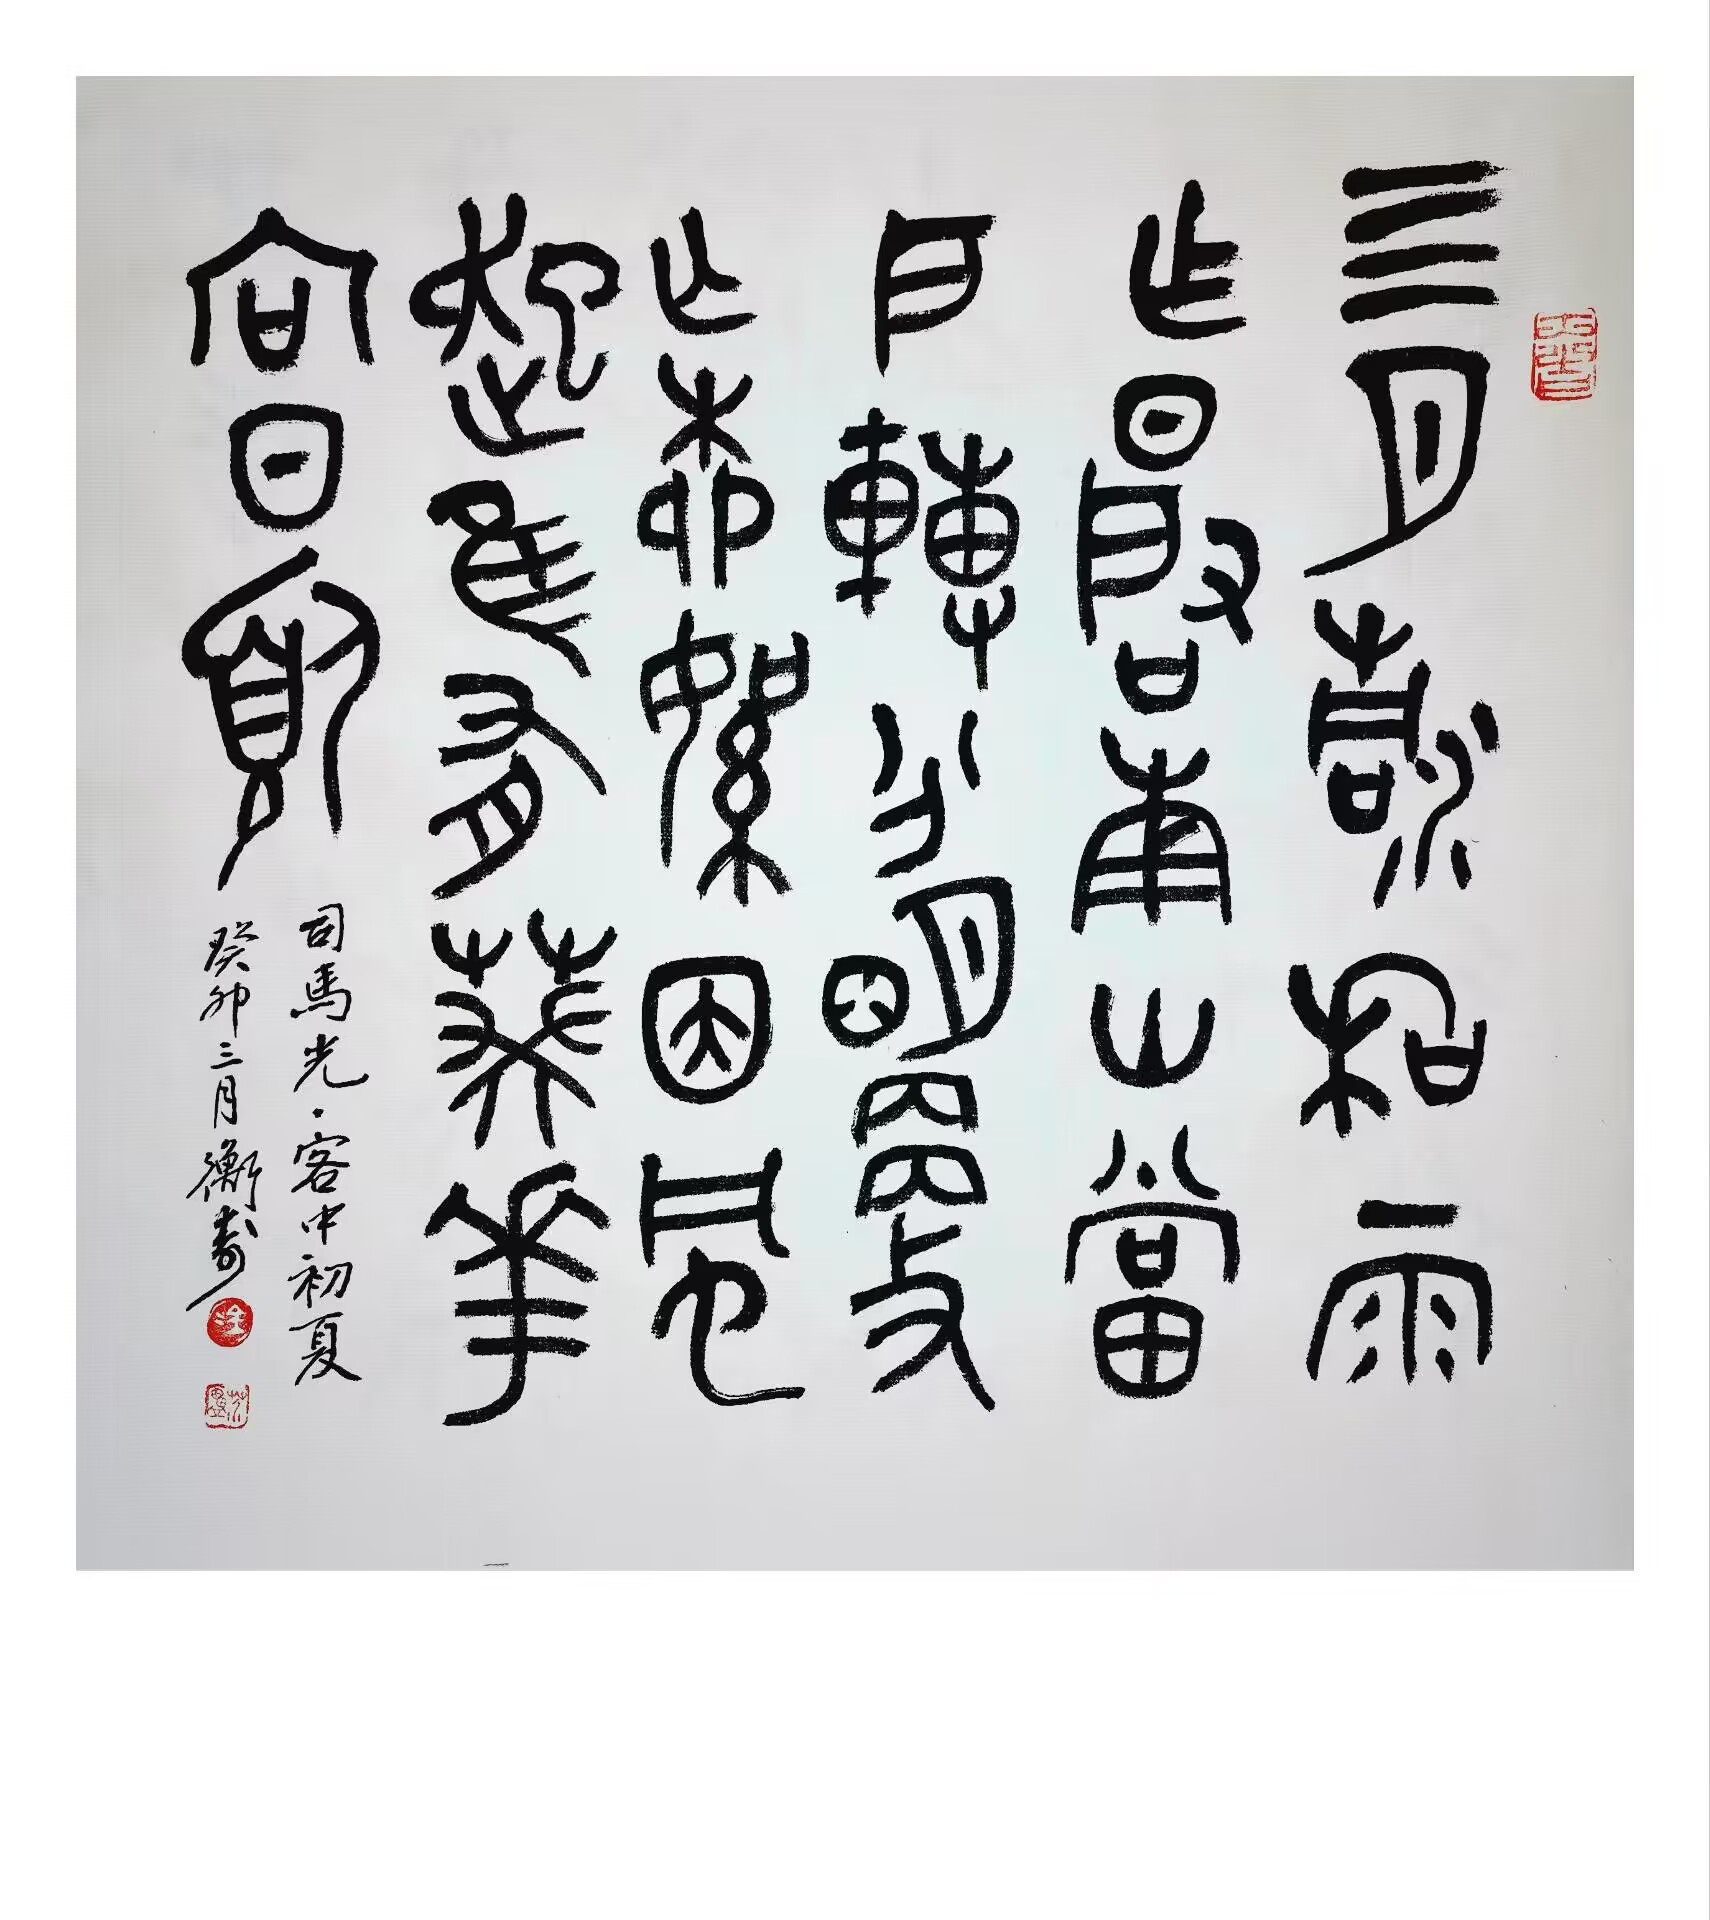 四月清和雨
乍晴南山當
戶轉分明更
亡柳絮因風
起隹有葵華
向日傾
司馬光·客中初夏
癸卯三月衡壽